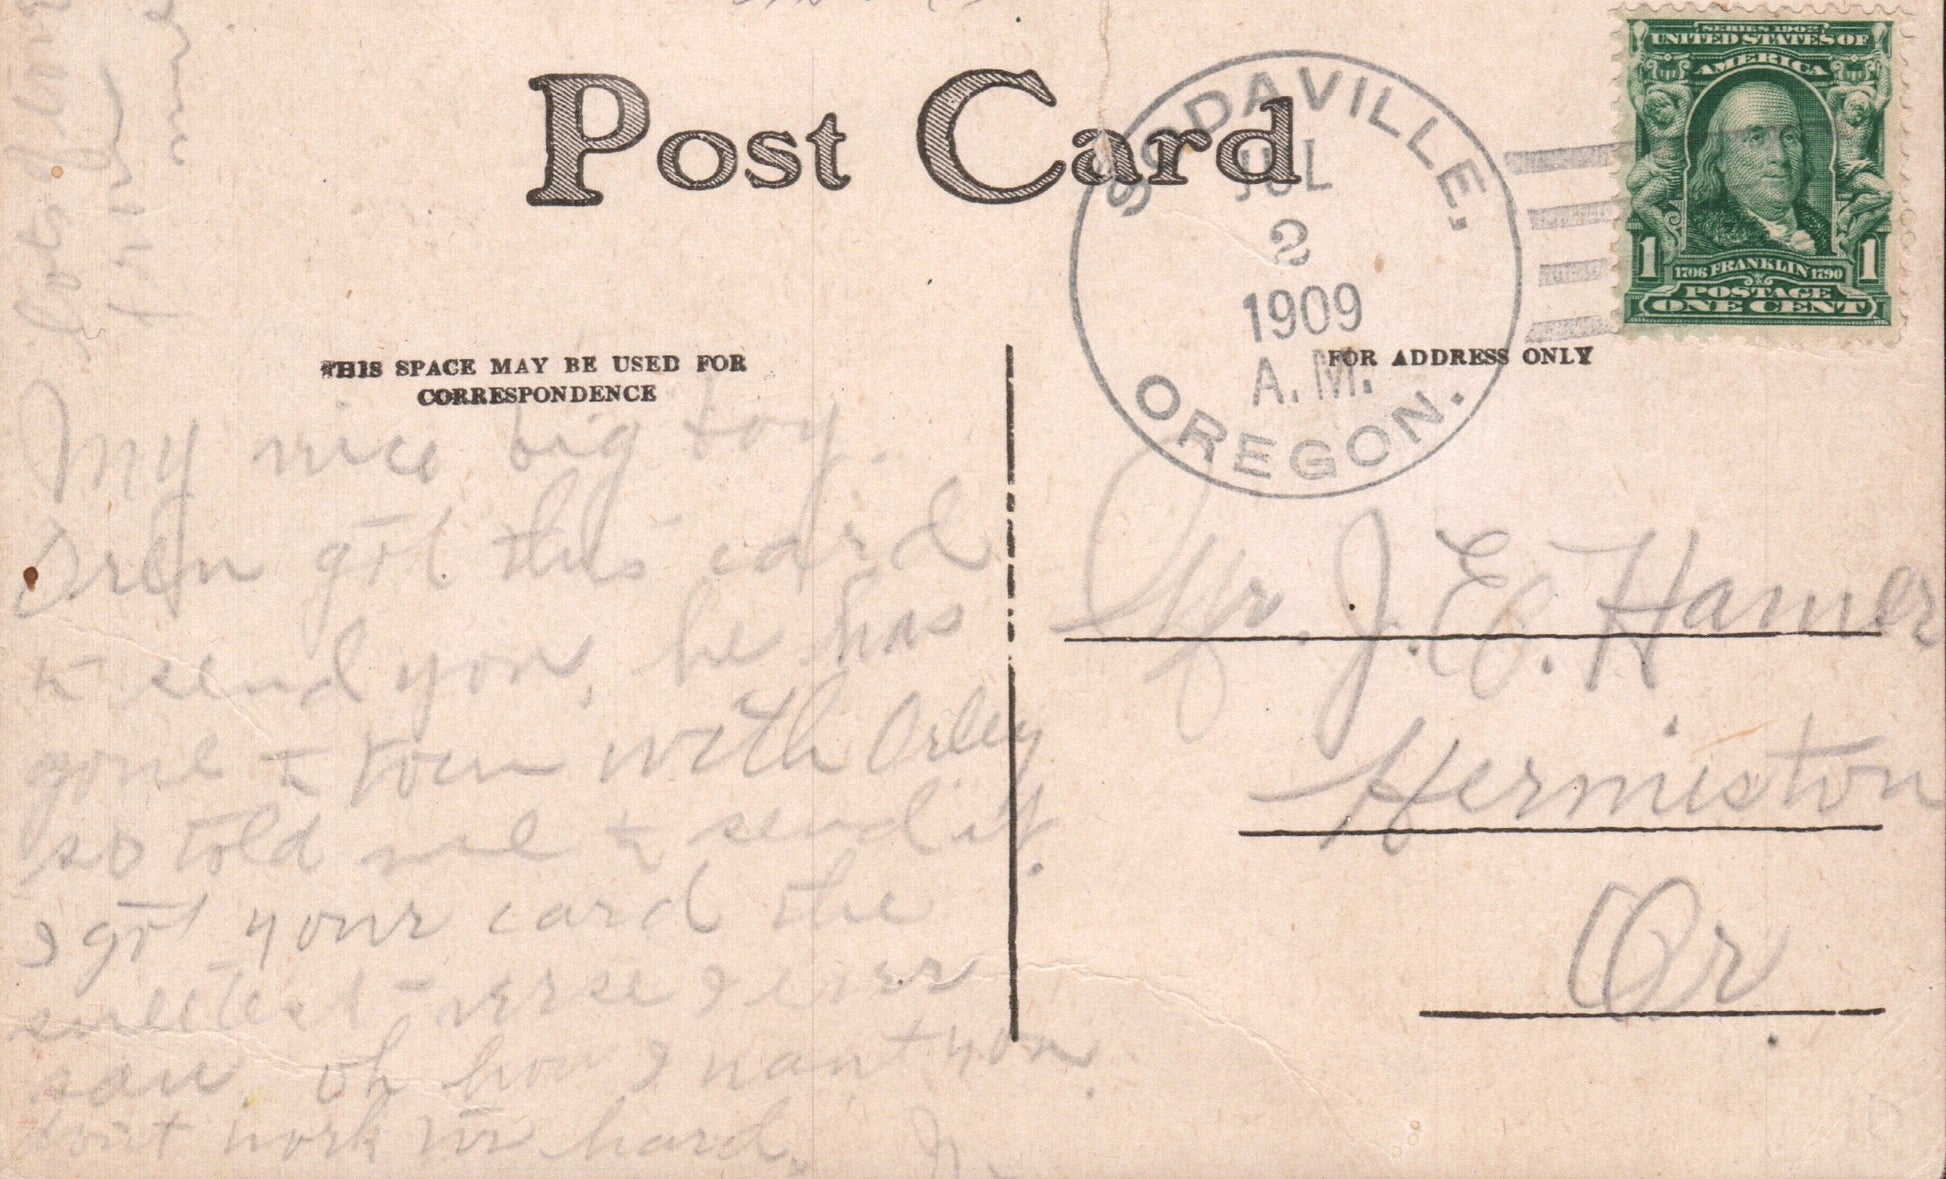 Post Card
SODAVILLE,
JUL
2
1909
A.M.
OREGON.
SERIES 1902
UNITED STATES OF
AMERICA
1 1
1706 FRANKLIN 1790
POSTAGE
ONE CENT
THIS SPACE MAY BE USED FOR
CORRESPONDENCE
FOR ADDRESS ONLY
My nice big toy.
Oren got this card
to send you, he has
gone to town with Orley
so told me to send it.
I got your card the
sweetest verse I ever
saw. oh how I want you
don't work too hard.
lots of love
Mr. J. E. Hamer
Hermiston
Or